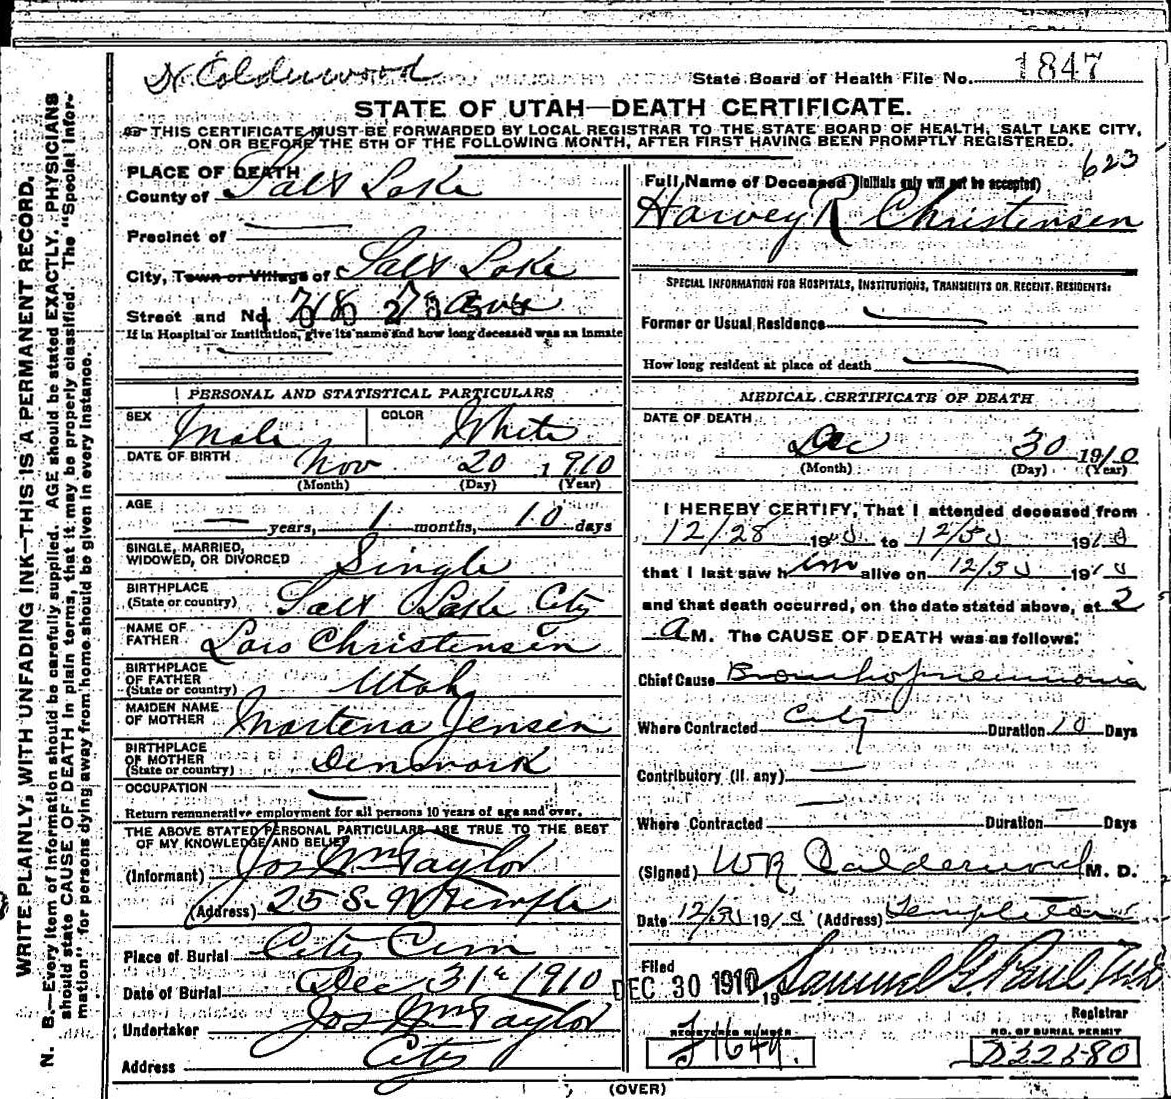 N. Calderwood
State Board of Health File No. 1847
STATE OF UTAH—DEATH CERTIFICATE.
THIS CERTIFICATE MUST BE FORWARDED BY LOCAL REGISTRAR TO THE STATE BOARD OF HEALTH, SALT LAKE CITY,
ON OR BEFORE THE 5TH OF THE FOLLOWING MONTH, AFTER FIRST HAVING BEEN PROMPTLY REGISTERED.
WRITE PLAINLY, WITH UNFADING INK—THIS IS A PERMANENT RECORD.
N. B.—Every item of information should be carefully supplied. AGE should be stated EXACTLY. PHYSICIANS
should state CAUSE OF DEATH in plain terms, that it may be properly classified. The "Special Infor-
mation" for persons dying away from home should be given in every instance.
PLACE OF DEATH
County of Salt Lake
Precinct of
City, Town or Village of Salt Lake
Street and No.
If in Hospital or Institution, give its name and how long deceased was an inmate
PERSONAL AND STATISTICAL PARTICULARS
SEX Male COLOR White
DATE OF BIRTH Nov 20 1910
(Month) (Day) (Year)
AGE — years, 1 months, 10 days
SINGLE, MARRIED,
WIDOWED, OR DIVORCED Single
BIRTHPLACE
(State or country) Salt Lake City
NAME OF
FATHER Lars Christensen
BIRTHPLACE
OF FATHER
(State or country) Utah
MAIDEN NAME
OF MOTHER Martena Jensen
BIRTHPLACE
OF MOTHER
(State or country) Denmark
OCCUPATION —
Return remunerative employment for all persons 10 years of age and over.
THE ABOVE STATED PERSONAL PARTICULARS ARE TRUE TO THE BEST
OF MY KNOWLEDGE AND BELIEF
(Informant) Jos Wm Taylor
(Address) 25 S. W Temple
Place of Burial City Cem
Date of Burial Dec 31 1910
Undertaker Jos Wm Taylor
Address City
623
Full Name of Deceased (Initials only will not be accepted)
Harvey R Christensen
SPECIAL INFORMATION FOR HOSPITALS, INSTITUTIONS, TRANSIENTS OR RECENT RESIDENTS:
Former or Usual Residence —
How long resident at place of death —
MEDICAL CERTIFICATE OF DEATH
DATE OF DEATH
Dec 30 1910
(Month) (Day) (Year)
I HEREBY CERTIFY, That I attended deceased from
12/28 1910 to 12/30 1910
that I last saw him alive on 12/30 1910
and that death occurred, on the date stated above, at 2
A M. The CAUSE OF DEATH was as follows:
Chief Cause Bronchopneumonia
Where Contracted City Duration 10 Days
Contributory (if any) —
Where Contracted — Duration — Days
(Signed) WR Calderwood M. D.
Date 12/30 1910 (Address) Templeton
Filed
DEC 30 1910 19 Samuel G. Paul MD
Registrar
REGISTERED NUMBER
NO. OF BURIAL PERMIT
J 1649.
D32680
(OVER)